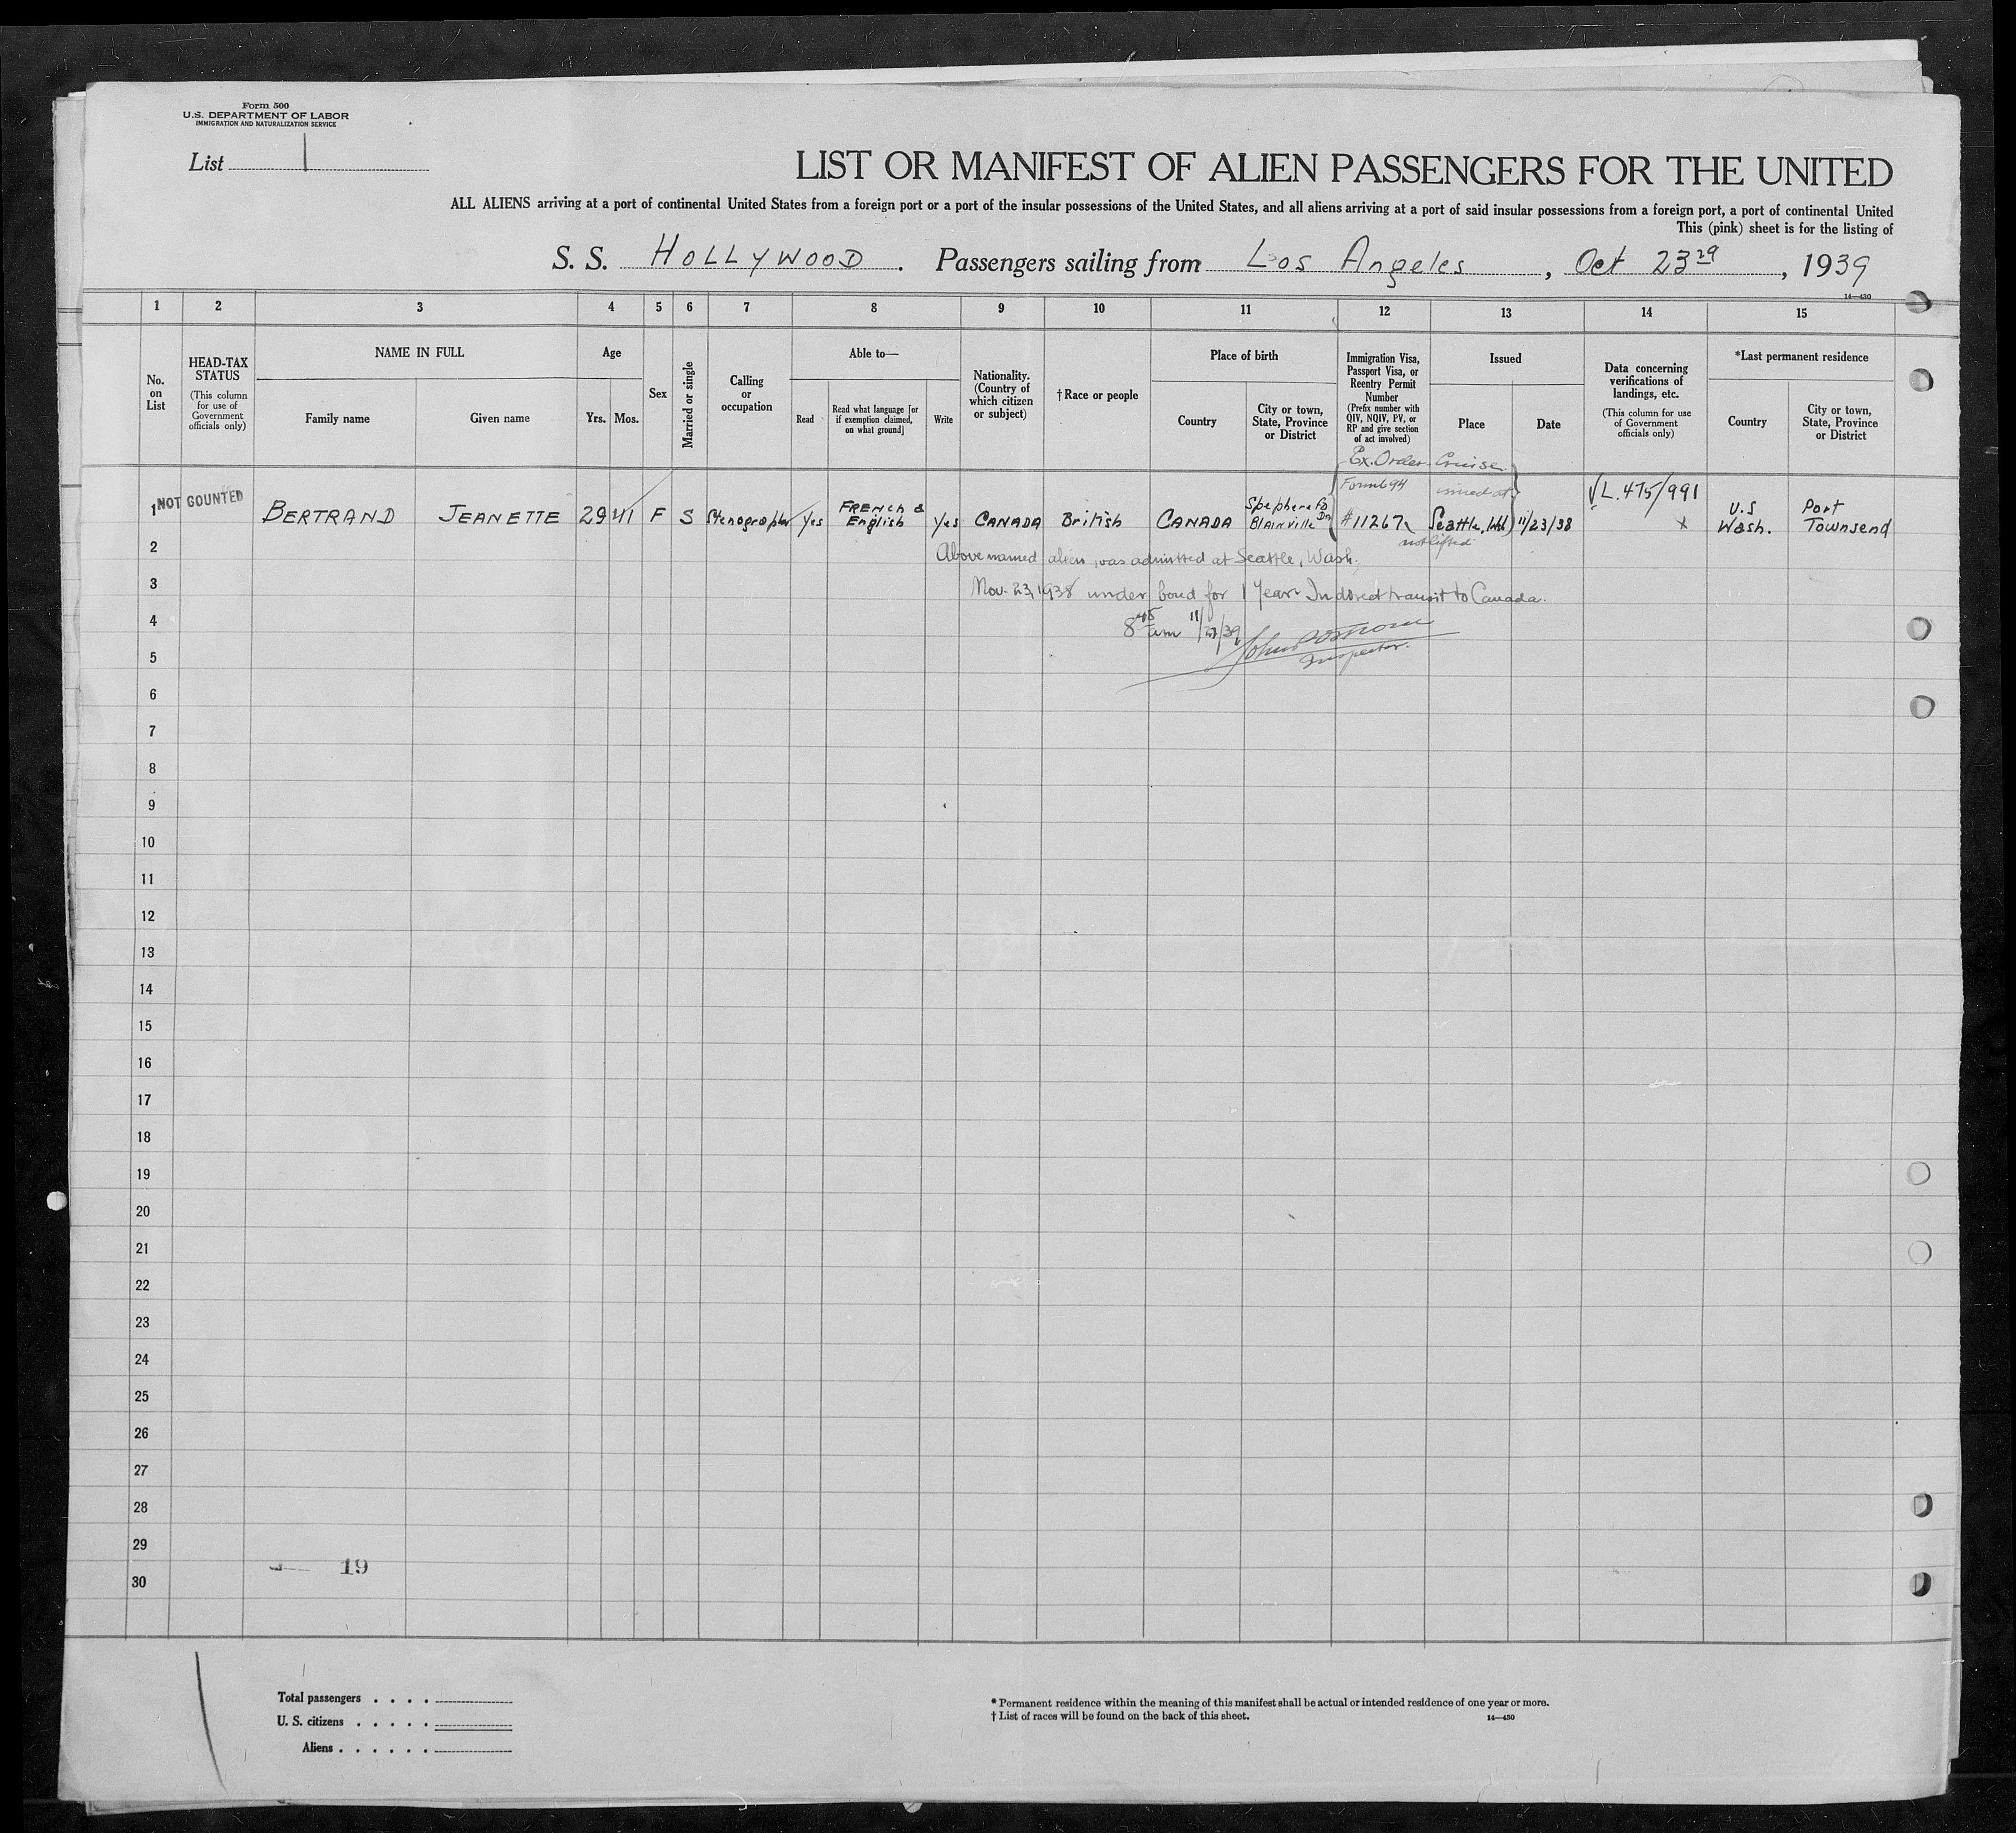 Form 500
U.S. DEPARTMENT OF LABOR
IMMIGRATION AND NATURALIZATION SERVICE
List 1
LIST OR MANIFEST OF ALIEN PASSENGERS FOR THE UNITED
ALL ALIENS arriving at a port of continental United States from a foreign port or a port of the insular possessions of the United States, and all aliens arriving at a port of said insular possessions from a foreign port, a port of continental United
This (pink) sheet is for the listing of
S. S. HOLLYWOOD. Passengers sailing from Los Angeles, Oct 23, 1939
14—430
1 2 3 4 5 6 7 8 9 10 11 12 13 14 15
No. on List
HEAD-TAX STATUS
(This column for use of Government officials only)
NAME IN FULL
Family name
Given name
Age
Yrs.
Mos.
Sex
Married or single
Calling or occupation
Able to—
Read
Read what language [or if exemption claimed, on what ground]
Write
Nationality. (Country of which citizen or subject)
† Race or people
Place of birth
Country
City or town, State, Province or District
Immigration Visa, Passport Visa, or Reentry Permit Number
(Prefix number with QIV, NQIV, PV, or RP and give section of act involved)
Issued
Place
Date
Data concerning verifications of landings, etc.
(This column for use of Government officials only)
*Last permanent residence
Country
City or town, State, Province or District
Ex. Order Cruise
Form 694 issued at
1 NOT COUNTED BERTRAND JEANETTE 29 F S Stenographer Yes FRENCH & English Yes CANADA British CANADA BLAINVILLE #11267 Seattle, 11/23/38 L.475/991 X U.S Wash. Port Townsend
not lifted
2 Above named alien was admitted at Seattle, Wash.
3 Nov. 23, 1938 under bond for 1 Year transit to Canada.
4 8 45 am
5 John Inspector.
6
7
8
9
10
11
12
13
14
15
16
17
18
19
20
21
22
23
24
25
26
27
28
29
19
30
Total passengers . . . .
U. S. citizens . . . . .
Aliens . . . . . .
* Permanent residence within the meaning of this manifest shall be actual or intended residence of one year or more.
† List of races will be found on the back of this sheet.
14—430